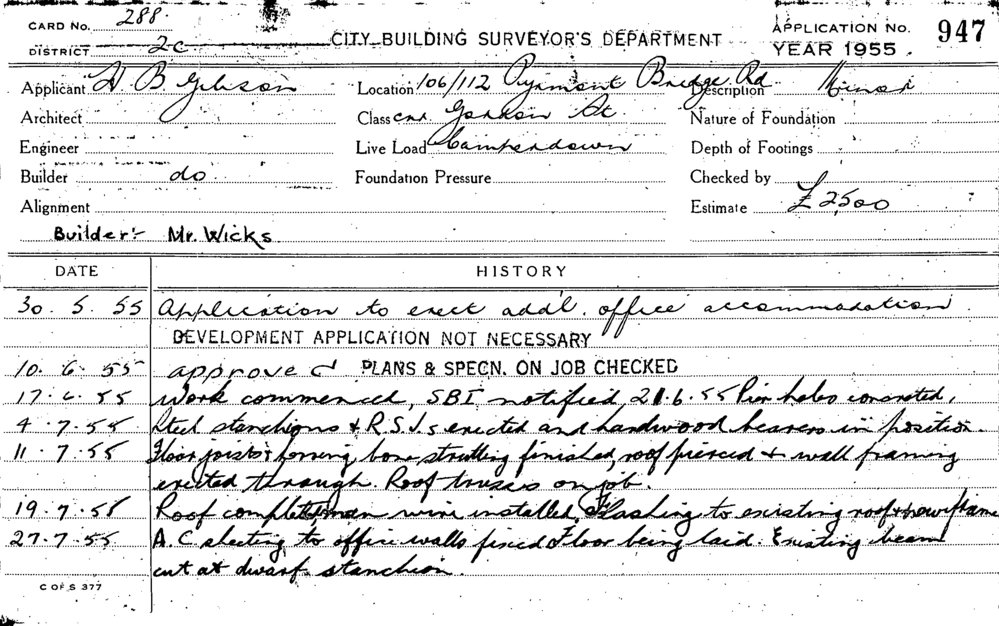 CARD No. 288.
DISTRICT 2c
CITY BUILDING SURVEYOR'S DEPARTMENT
APPLICATION No. 947
YEAR 1955.
Applicant H B Gibson
Location 106/112 Pyrmont Bridge Rd
Description Minor
Architect
Class cnr Gordon St
Nature of Foundation
Engineer
Live Load Camperdown
Depth of Footings
Builder do
Foundation Pressure
Checked by
Alignment
Estimate £2500
Builder:- Mr. Wicks.
DATE HISTORY
30. 5. 55 Application to erect addl. office accommodation
DEVELOPMENT APPLICATION NOT NECESSARY
10. 6. 55 approved PLANS & SPECN. ON JOB CHECKED
17. 6. 55 Work commenced, SBI notified, 21.6.55 Pier holes concreted,
4. 7. 55 Steel stanchions & R.S.J.s erected and hardwood bearers in position.
11. 7. 55 Floor joists & herring bone strutting finished, roof pierced & wall framing
erected through. Roof trusses on job.
19. 7. 55 Roof complete, man wire installed. Flashing to existing roof &
27. 7. 55 A.C sheeting to office walls fixed Floor being laid. Existing beam
cut at dwarf stanchion.
C OF S 377